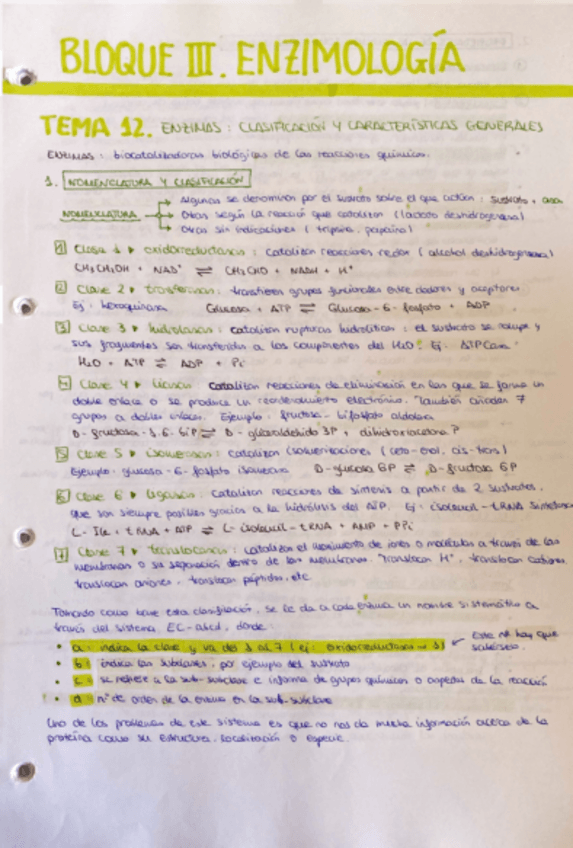 BLOQUE III. ENZIMOLOGÍA
TEMA 12. ENZIMAS: CLASIFICACIÓN Y CARACTERÍSTICAS GENERALES
ENZIMAS: biocatalizadores biológicos de las reacciones químicas.
1. NOMENCLATURA Y CLASIFICACIÓN
Algunas se denominan por el sustrato sobre el que actúan: sustrato + asa
NOMENCLATURA Otras según la reacción que catalizan (lactato deshidrogenasa)
Otras sin indicaciones (tripsina, papaína)
1 Clase 1 ▸ oxidorreductasas: catalizan reacciones redox (alcohol deshidrogenasa)
CH3CH2OH + NAD+ ⇌ CH3CHO + NADH + H+
2 Clase 2 ▸ transferasas: transfieren grupos funcionales entre dadores y aceptores
Ej: hexoquinasa Glucosa + ATP ⇌ Glucosa-6-fosfato + ADP
3 Clase 3 ▸ hidrolasas: catalizan rupturas hidrolíticas: el sustrato se rompe y
sus fragmentos son transferidos a los componentes del H2O. Ej: ATPasa
H2O + ATP ⇌ ADP + Pi
4 Clase 4 ▸ liasas: catalizan reacciones de eliminación en las que se forma un
doble enlace o se produce un reordenamiento electrónico. También añaden
grupos a dobles enlaces. Ejemplo: fructosa-bifosfato aldolasa
D-fructosa-1,6-biP ⇌ D-gliceraldehido 3P + dihidroxiacetona P
5 Clase 5 ▸ isomerasas: catalizan isomerizaciones (ceto-enol, cis-trans)
Ejemplo: glucosa-6-fosfato isomerasa D-glucosa 6P ⇌ D-fructosa 6P
6 Clase 6 ▸ ligasas: catalizan reacciones de síntesis a partir de 2 sustratos,
que son siempre posibles gracias a la hidrólisis del ATP. Ej: isoleucil-tRNA sintetasa
L-Ile + tRNA + ATP ⇌ L-isoleucil-tRNA + AMP + PPi
7 Clase 7 ▸ translocasas: catalizan el movimiento de iones o moléculas a través de las
membranas o su separación dentro de las membranas. Translocan H+, translocan cationes,
translocan aniones, translocan péptidos, etc.
Tomando como base esta clasificación, se le da a cada enzima un nombre sistemático a
través del sistema EC-abcd, donde:
• a: indica la clase y va del 1 al 7 (ej: oxidorreductasas → 1) Este nº hay que sabérselo.
• b: indica las subclases, por ejemplo del sustrato
• c: se refiere a la sub-subclase e informa de grupos químicos o aspectos de la reacción
• d: nº de orden de la enzima en la sub-subclase
Uno de los problemas de este sistema es que no nos da mucha información acerca de la
proteína como su estructura, localización o especie.